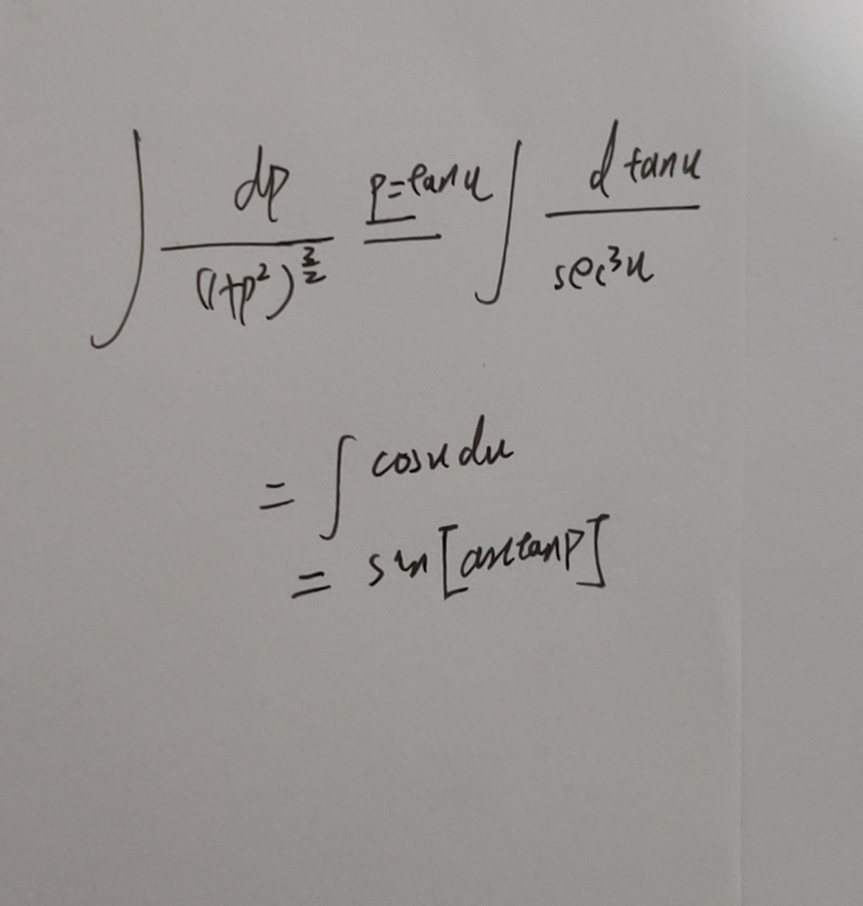 ∫ dp/(1+p²)^(3/2) p=tanu ∫ d tanu/sec³u
= ∫ cosu du
= sin[arctanp]